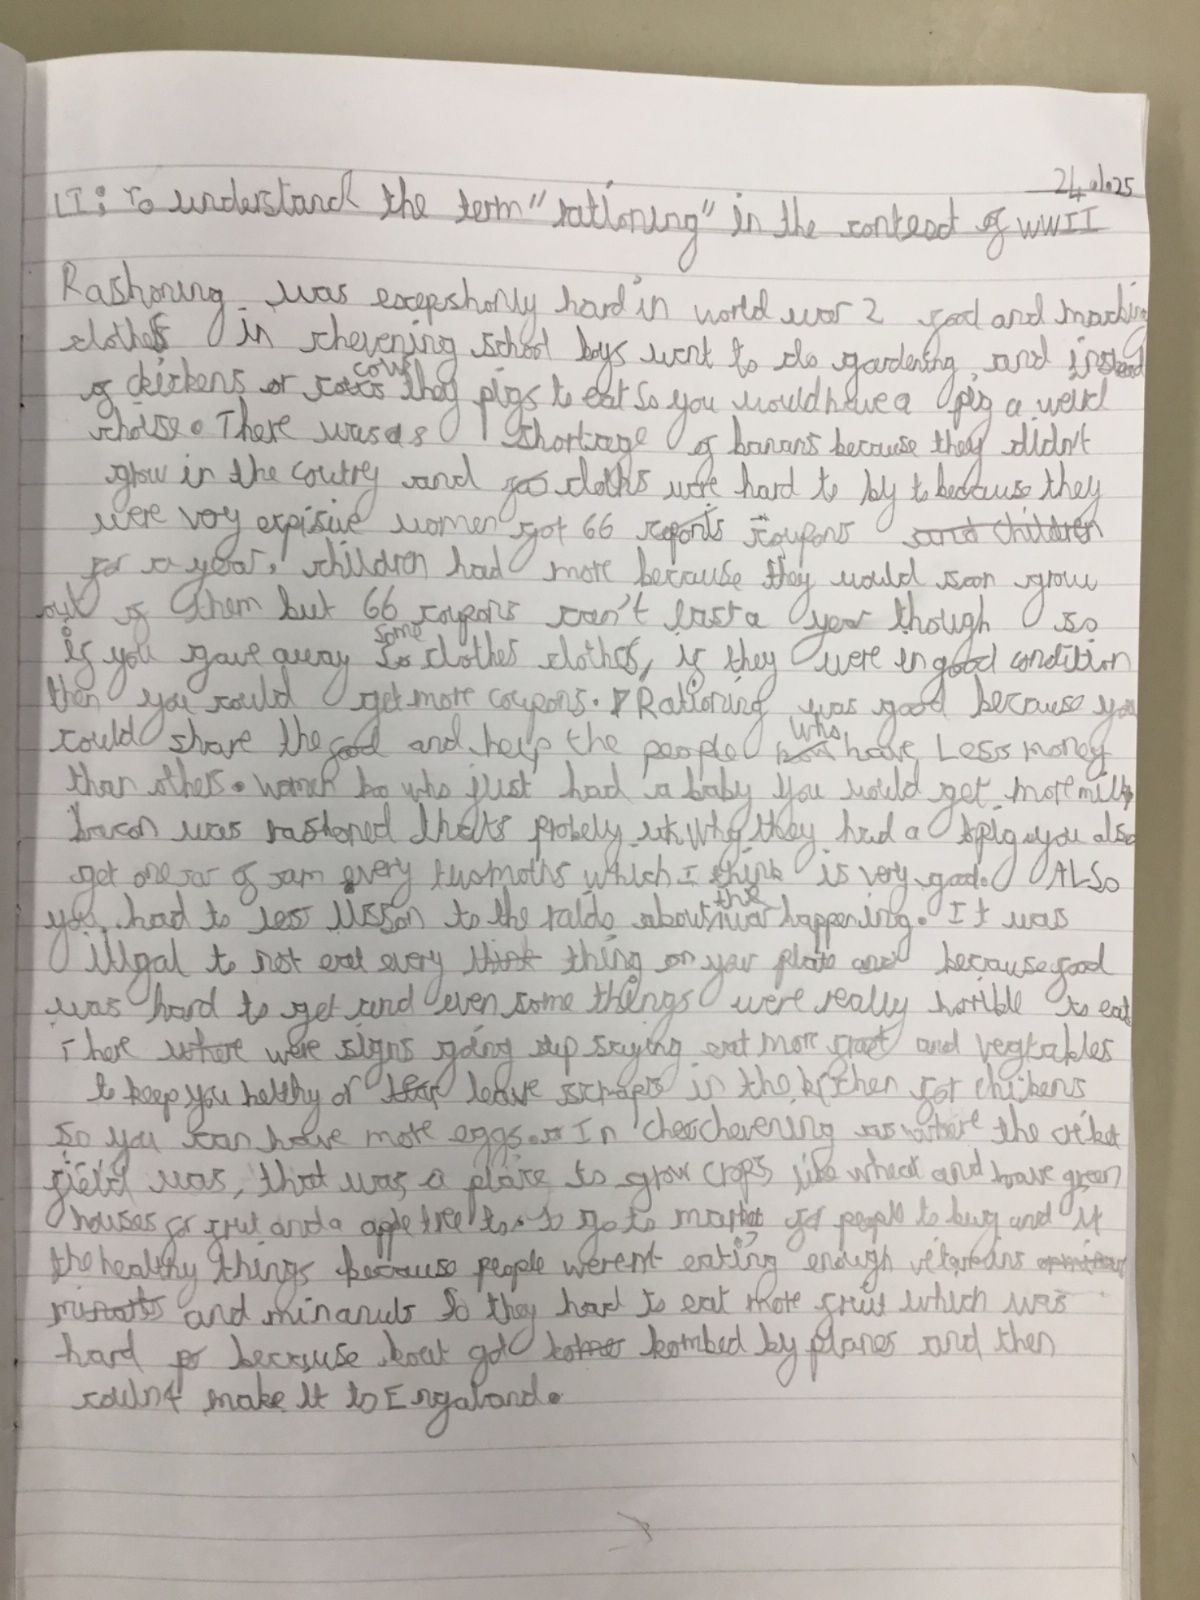 24.01.25
LI: To understand the term "rationing" in the context of WWII
Rashoning was excepshonly hard in world war 2 food and maching
clothes in chevening school boys went to do gardening and instead
of chickens or cows they pigs to eat So you would have a pig a weird
choise. There was a shortage of banans because they didn't
grow in the coutry and cloths were hard to by to because they
were very expisive women got 66 coupons
for a year. children had more because they would soon grow
out of them but 66 coupons can't last a year though so
if you gave away some clothes clothes, if they were in good condition
then you could get more coupons. Rationing was good because you
could share the food and help the people who have Less money
than others. Women who just had a baby you would get more milk
bacon was rashoned thats probely why they had a pig you also
get one jar of jam every two moths which I think is very good. ALSo
you had to lisson to the raido about the war happening. It was
illgal to not eat every thing on your plate because food
was hard to get and even some things were really horrible to eat
There were signs going up saying eat more fruit and vegtables
to keep you helthy or leave scraps in the kitchen for chickens
so you can have more eggs. In chevening where the criket
field was, that was a place to grow crops like wheat and have green
houses for fruit and a apple tree to go to market for people to buy and it
the healthy things because people werent eating enough vitamins
and minaruls So they had to eat more fruit which was
hard because boat got bombed by planes and then
couln't make it to Engaland.